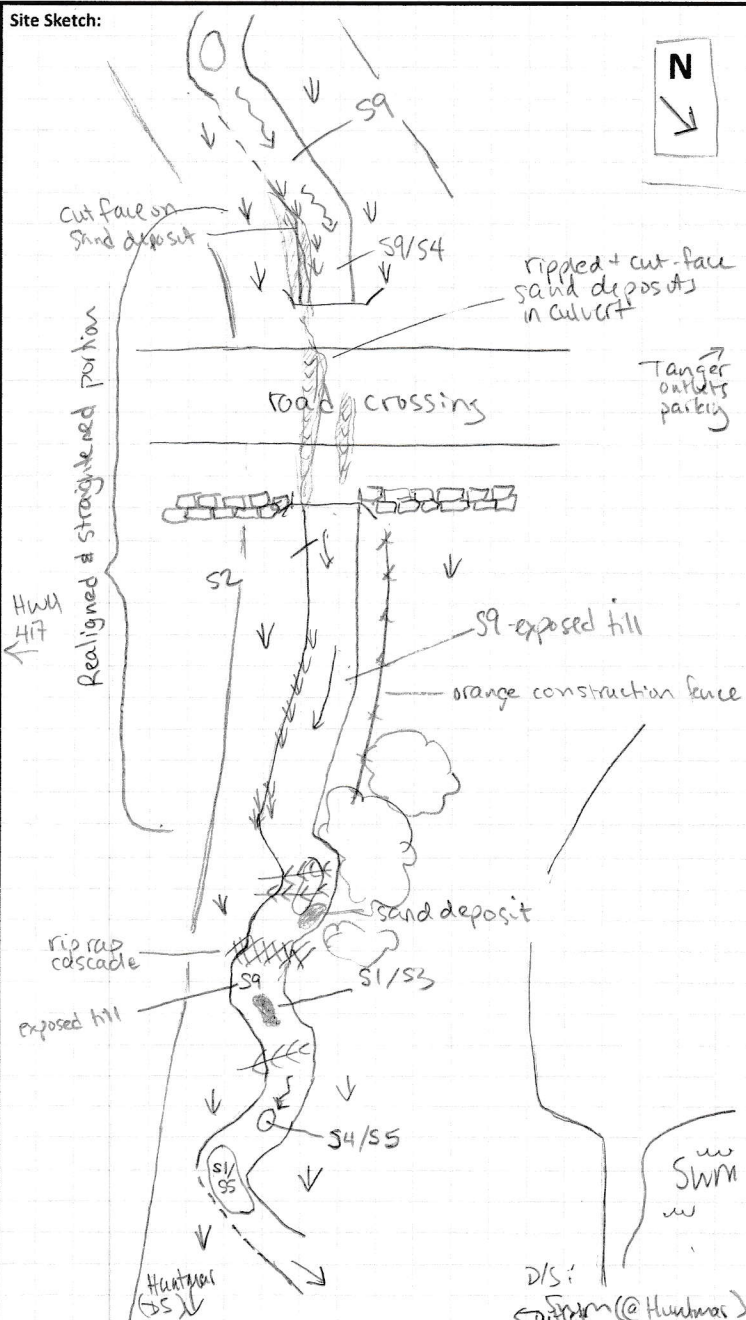 Site Sketch:
N
S9
cut face on
sand deposit
S9/S4
rippled + cut-face
sand deposits
in culvert
Tanger
outlets
parking
road crossing
Realigned & straightened portion
S2
HWY
417
S9-exposed till
orange construction fence
sand deposit
riprap
cascade
S9
S1/S3
exposed till
S4/S5
S1/
S5
SWM
Huntmar
(DS)
D/S:
(@ Huntmar)